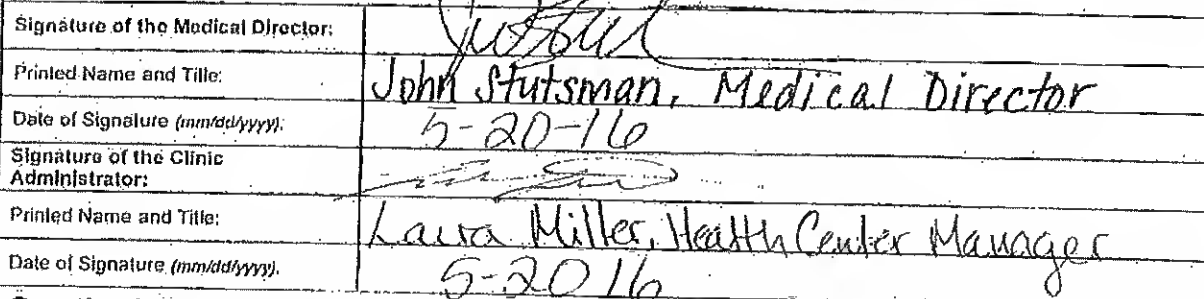 Signature of the Medical Director:
Printed Name and Title: John Stutsman, Medical Director
Date of Signature (mm/dd/yyyy): 5-20-16
Signature of the Clinic
Administrator:
Printed Name and Title: Laura Miller, Health Center Manager
Date of Signature (mm/dd/yyyy). 5-20 16